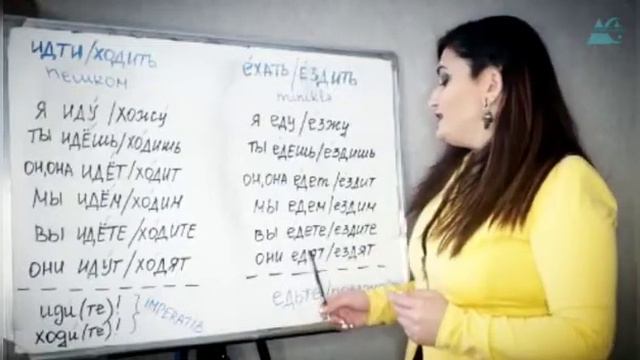 ИДТИ/ХОДИТЬ
пешком
Я ИДУ́/ХОЖУ́
ТЫ ИДЁШЬ/ХО́ДИШЬ
ОН,ОНА ИДЁТ/ХО́ДИТ
МЫ ИДЁМ/ХО́ДИМ
ВЫ ИДЁТЕ/ХО́ДИТЕ
ОНИ ИДУ́Т/ХО́ДЯТ
иди(те)!
ходи́(те)!
IMPERATIB
Е́ХАТЬ/Е́ЗДИТЬ
Я ЕДУ/ЕЗЖУ
ТЫ ЕДЕШЬ/ЕЗДИШЬ
ОН,ОНА ЕДЕТ/ЕЗДИТ
МЫ ЕДЕМ/ЕЗДИМ
ВЫ ЕДЕТЕ/ЕЗДИТЕ
ОНИ ЕДУТ/ЕЗДЯТ